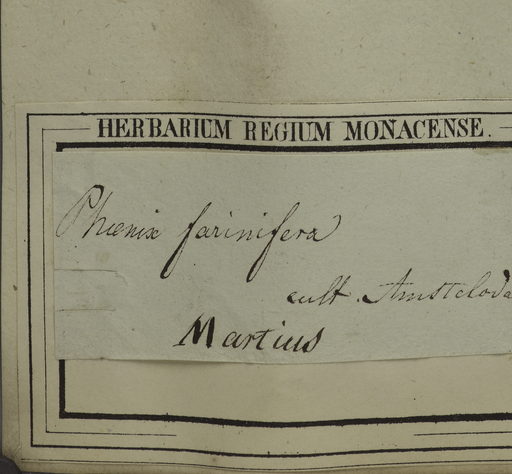 HERBARIUM REGIUM MONACENSE.
Phœnix farinifera
cult. Amsteloda
Martius